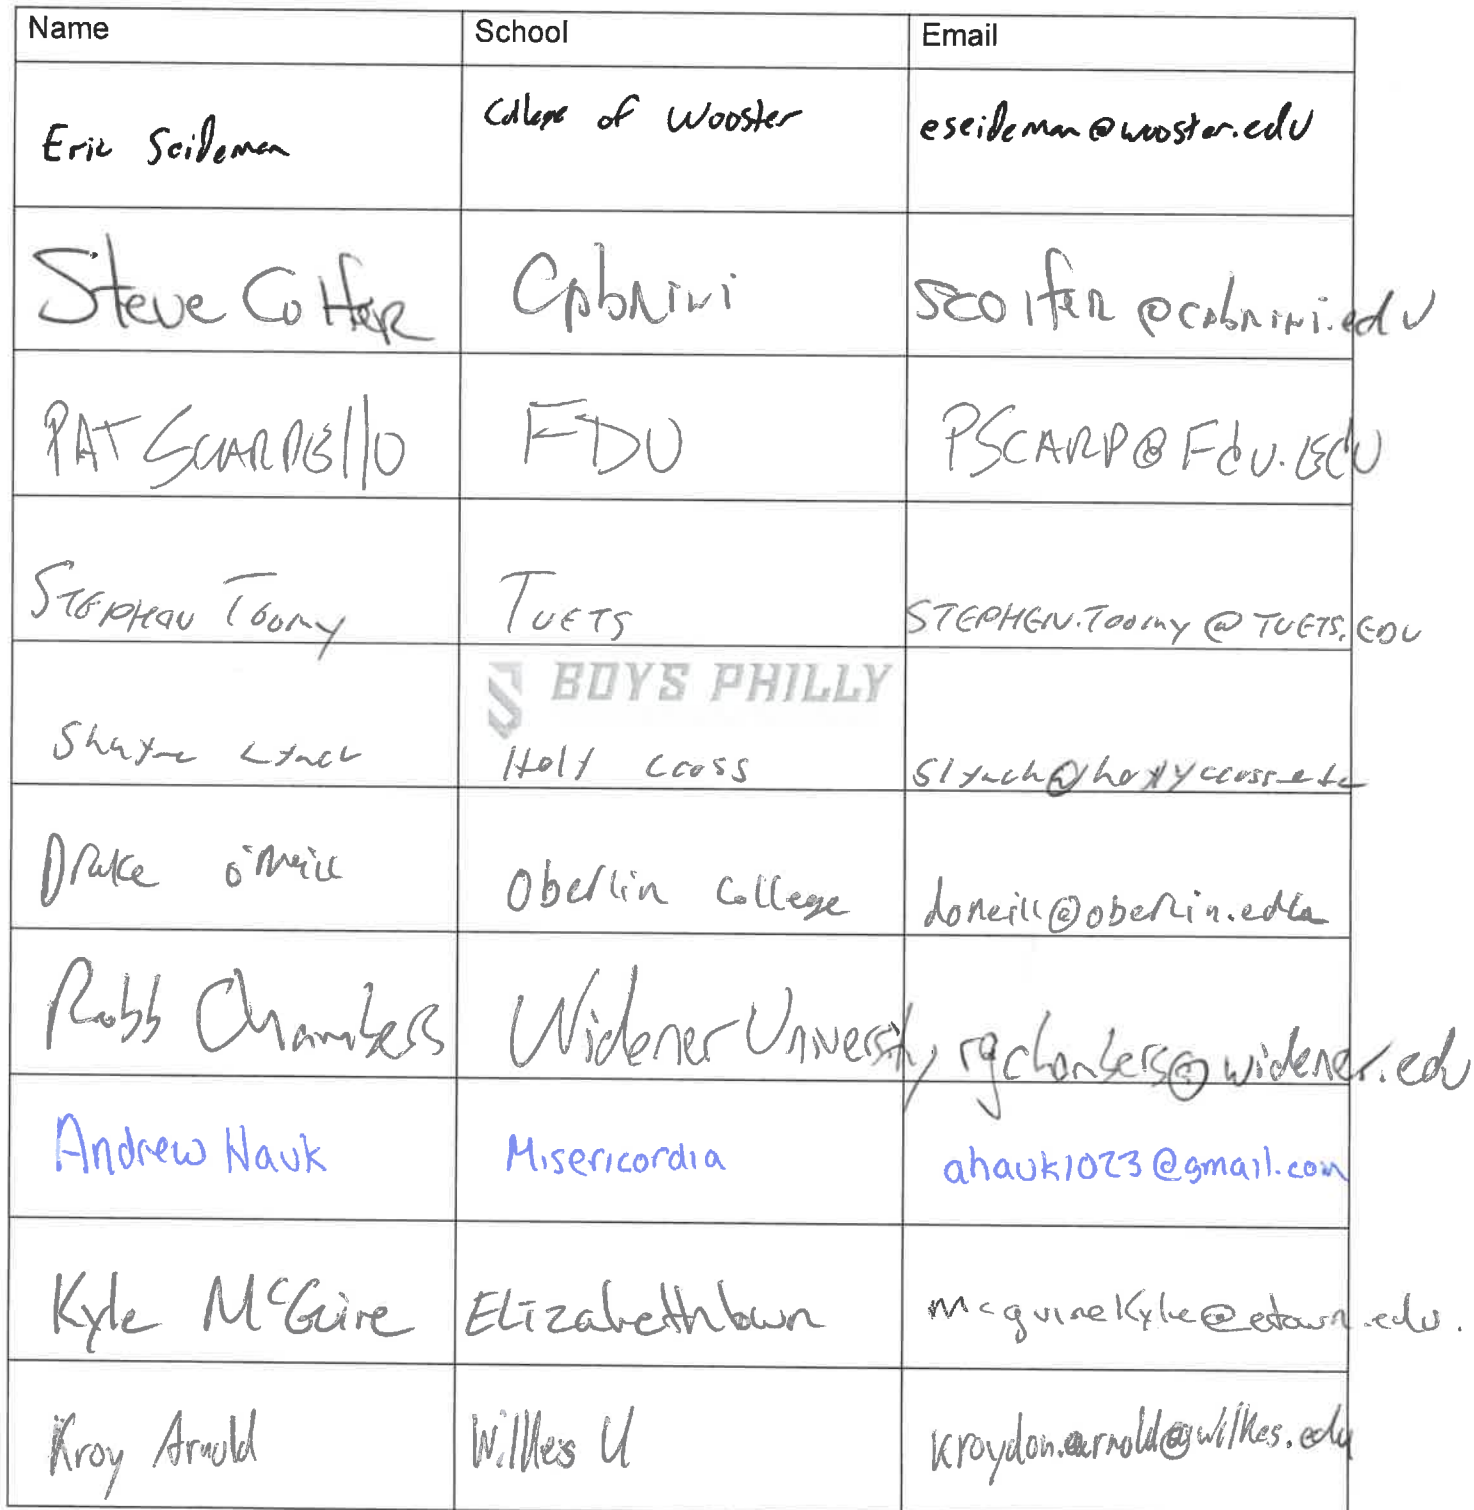 Name School Email
Eric Seideman College of Wooster eseideman@wooster.edu
Steve Colfer Cabrini scolfer@cabrini.edu
PAT SCARPello FDU PSCARP@Fdu.EdU
STEPHEN Toomy TUFTS STEPHEN.Toomy@TUFTS.EDU
BOYS PHILLY
Shayne Lynch Holy Cross slynch@holycross.edu
Drake O'Neill Oberlin College doneill@oberlin.edu
Robb Chambers Widener University rgchambers@widener.edu
Andrew Hauk Misericordia ahauk1023@gmail.com
Kyle McGuire Elizabethtown mcguirekyle@etown.edu.
Kroy Arnold Wilkes U kroydon.arnold@wilkes.edu